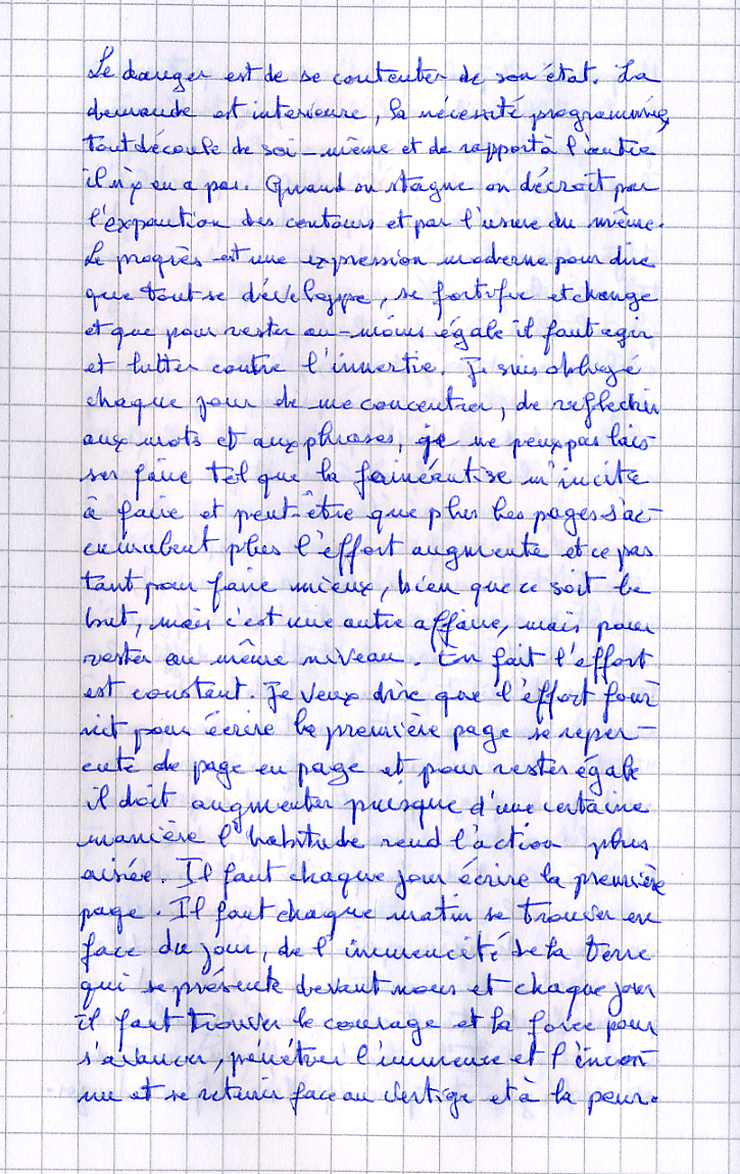 Le danger est de se contenter de son état. La
demande est intérieure, la nécessité programmée,
tout découle de soi-même et de rapport à l'autre
il n'y en a pas. Quand on stagne on décroit par
l'expantion des contours et par l'usure du même.
Le progrès est une expression moderne pour dire
que tout se développe, se fortifie et change
et que pour rester au-moins égale il faut agir
et lutter contre l'innertie. Je suis obligé
chaque jour de me concentrer, de reflechir
aux mots et aux phrases, je ne peux pas lais-
ser faire tel que la fainéantise m'incite
à faire et peut-être que plus les pages s'ac-
cumulent plus l'effort augmente et ce pas
tant pour faire mieux, bien que ce soit le
but, mais c'est une autre affaire, mais pour
rester au même niveau. En fait l'effort
est constant. Je veux dire que l'effort four-
nit pour écrire la première page se reper-
cute de page en page et pour rester égale
il doit augmenter puisque d'une certaine
manière l'habitude rend l'action plus
aisée. Il faut chaque jour écrire la première
page. Il faut chaque matin se trouver en
face du jour, de l'immencité de la terre
qui se présente devant nous et chaque jour
il faut trouver le courage et la force pour
s'avancer, pénétrer l'immense et l'incon-
nu et se retenir face au vertige et à la peur.